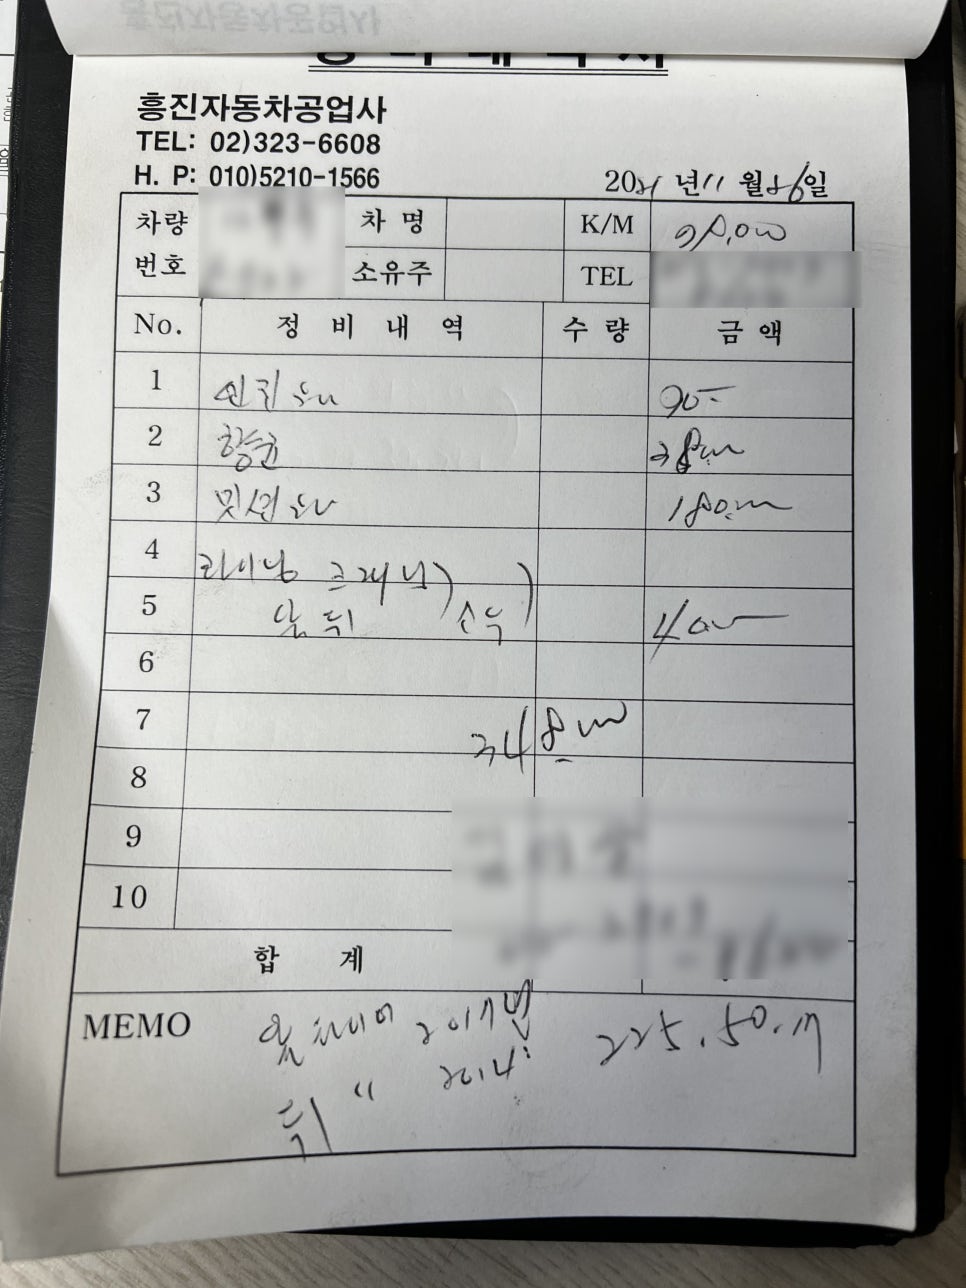 흥진자동차공업사
TEL: 02)323-6608
H. P: 010)5210-1566
2021년 11월 26일
차량 번호 차명 K/M 98,000
소유주 TEL
No. 정비내역 수량 금액
1 엔진오일 90
2 향균 38000
3 밋션오일 180,000
4 라이닝 크리닝)
5 앞뒤 손유) 40
6
7 348000
8
9
10
합 계
MEMO 앞 타이어 2017년 225.50.17
뒤 〃 2014